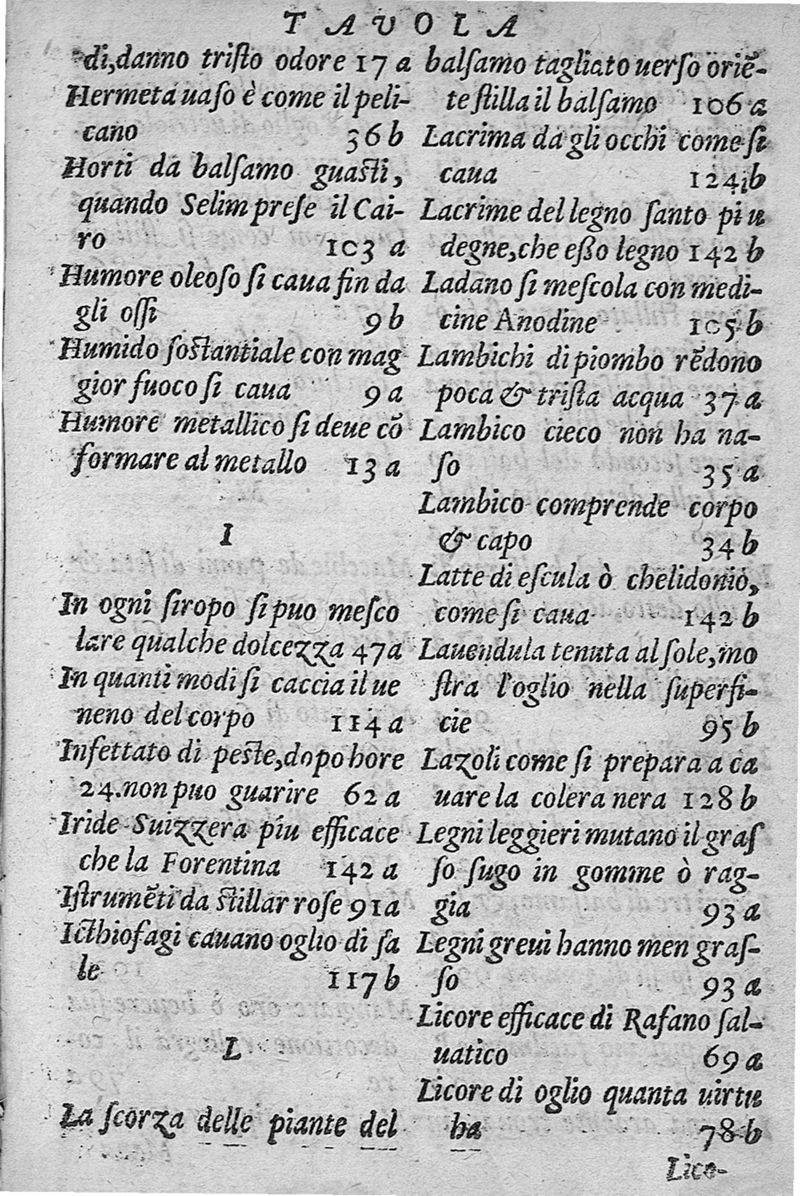 TAVOLA
di, danno tristo odore 17 a
Hermeta uaso è come il peli-
cano 36 b
Horti da balsamo guasti,
quando Selim prese il Cai-
ro 103 a
Humore oleoso si caua fin da
gli ossi 9 b
Humido sostantiale con mag
gior fuoco si caua 9 a
Humore metallico si deue cō
formare al metallo 13 a
I
In ogni siropo si puo mesco
lare qualche dolcezza 47 a
In quanti modi si caccia il ue
neno del corpo 114 a
Infettato di peste, dopo hore
24. non puo guarire 62 a
Iride Suizzera piu efficace
che la Forentina 142 a
Istrumēti da stillar rose 91 a
Icthiofagi cauano oglio di sa
le 117 b
L
La scorza delle piante del
balsamo tagliato uerso oriē-
te stilla il balsamo 106 a
Lacrima da gli occhi come si
caua 124 b
Lacrime del legno santo piu
degne, che esso legno 142 b
Ladano si mescola con medi-
cine Anodine 105 b
Lambichi di piombo rēdono
poca & trista acqua 37 a
Lambico cieco non ha na-
so 35 a
Lambico comprende corpo
& capo 34 b
Latte di escula ò chelidonio,
come si caua 142 b
Lauendula tenuta al sole, mo
stra l'oglio nella superfi-
cie 95 b
Lazoli come si prepara a ca
uare la colera nera 128 b
Legni leggieri mutano il gras
so sugo in gomme ò rag-
gia 93 a
Legni greui hanno men gras-
so 93 a
Licore efficace di Rafano sal-
uatico 69 a
Licore di oglio quanta uirtu
ha 78 b
Lico-